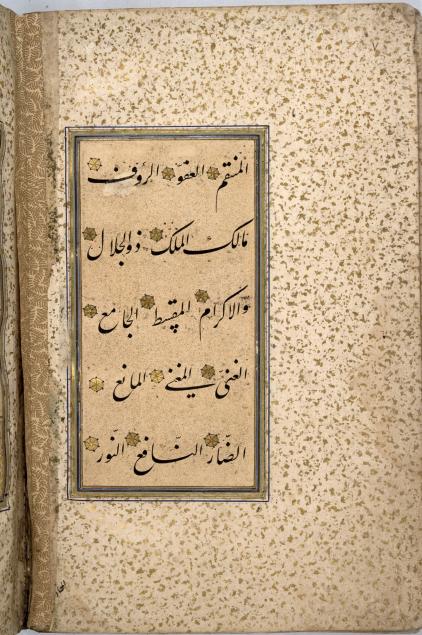 المنتقم العفوّ الرؤف
مالك الملك ذوالجلال
والاكرام المقسط الجامع
الغنىّ المغنى المانع
الضّار النّافع النّور